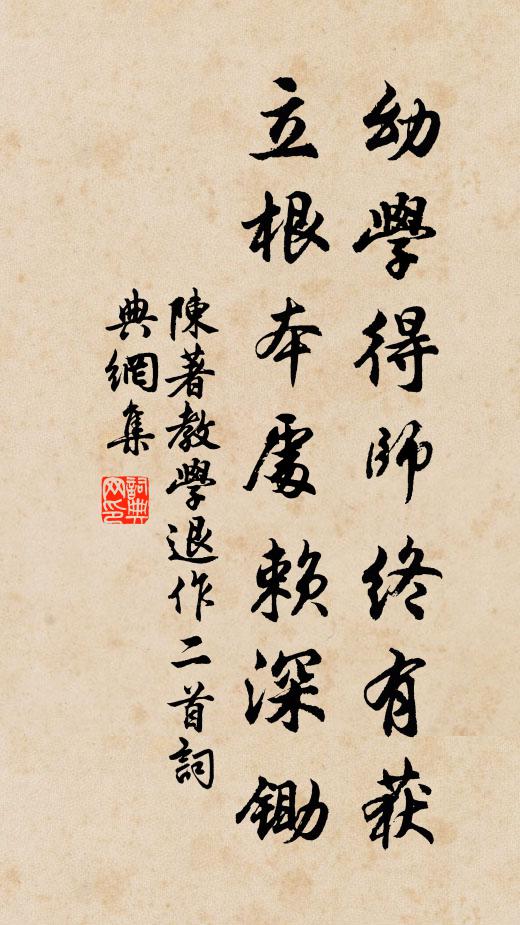 幼學得師終有获
立根本處賴深鋤
陳著教學退作二首詞
典網集
詞典网印